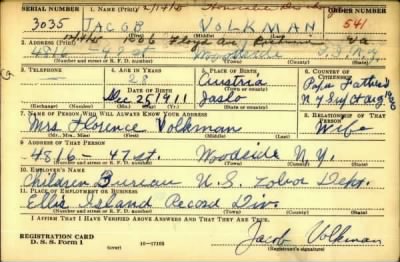 SERIAL NUMBER 1. NAME (Print) ORDER NUMBER
3035 JACOB VOLKMAN 541
2. ADDRESS (Print)
4816-47 St. Woodside N.Y.
3. TELEPHONE 4. AGE IN YEARS 5. PLACE OF BIRTH 6. COUNTRY OF CITIZENSHIP
28 Austria Papa Father's
DATE OF BIRTH
Dec 25 1911 Jaslo
(Exchange) (Number) (Mo.) (Day) (Yr.) (Town or county) (State or country)
7. NAME OF PERSON WHO WILL ALWAYS KNOW YOUR ADDRESS 8. RELATIONSHIP OF THAT PERSON
Mrs. Florence Volkman Wife
(Mr., Mrs., Miss) (First) (Middle) (Last)
9. ADDRESS OF THAT PERSON
4816-47 St. Woodside N.Y.
(Number and street or R. F. D. number) (Town) (County) (State)
10. EMPLOYER'S NAME
Children Bureau U.S. Labor Dept.
11. PLACE OF EMPLOYMENT OR BUSINESS
Ellis Island Record Div.
(Number and street or R. F. D. number) (Town) (County) (State)
I AFFIRM THAT I HAVE VERIFIED ABOVE ANSWERS AND THAT THEY ARE TRUE.
REGISTRATION CARD
D. S. S. Form 1 (over) 16-17105 Jacob Volkman
(Registrant's signature)